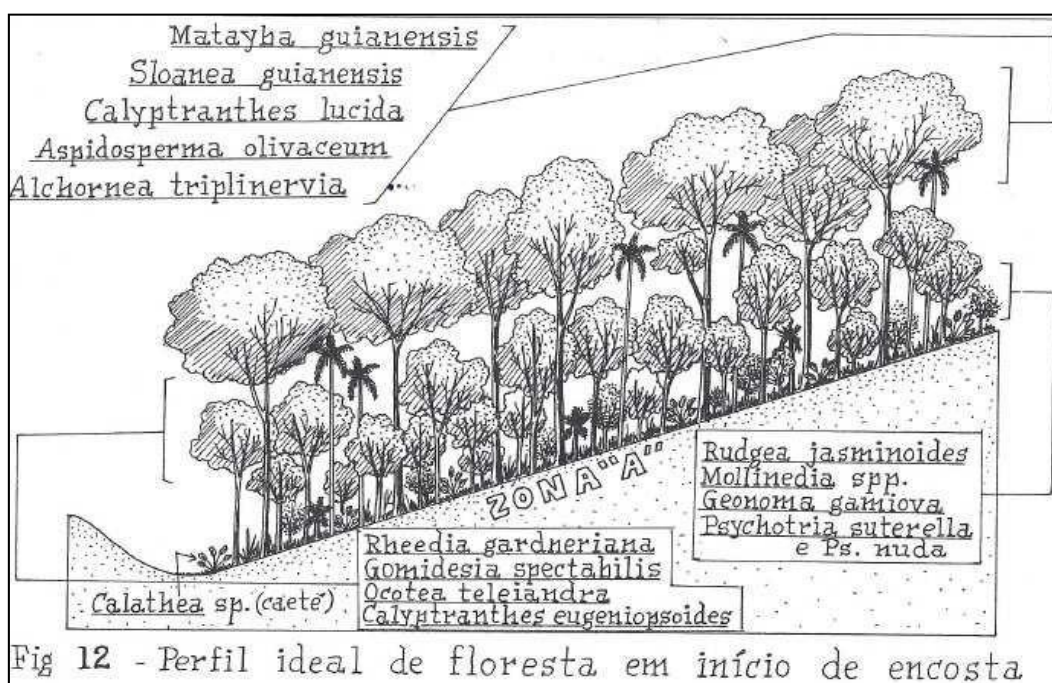 Matayba guianensis
Sloanea guianensis
Calyptranthes lucida
Aspidosperma olivaceum
Alchornea triplinervia
ZONA "A"
Rudgea jasminoides
Mollinedia spp.
Geonoma gamiova
Psychotria suterella
e Ps. nuda
Rheedia gardneriana
Gomidesia spectabilis
Ocotea teleiandra
Calyptranthes eugeniopsoides
Calathea sp. (caeté)
Fig 12 - Perfil ideal de floresta em início de encosta